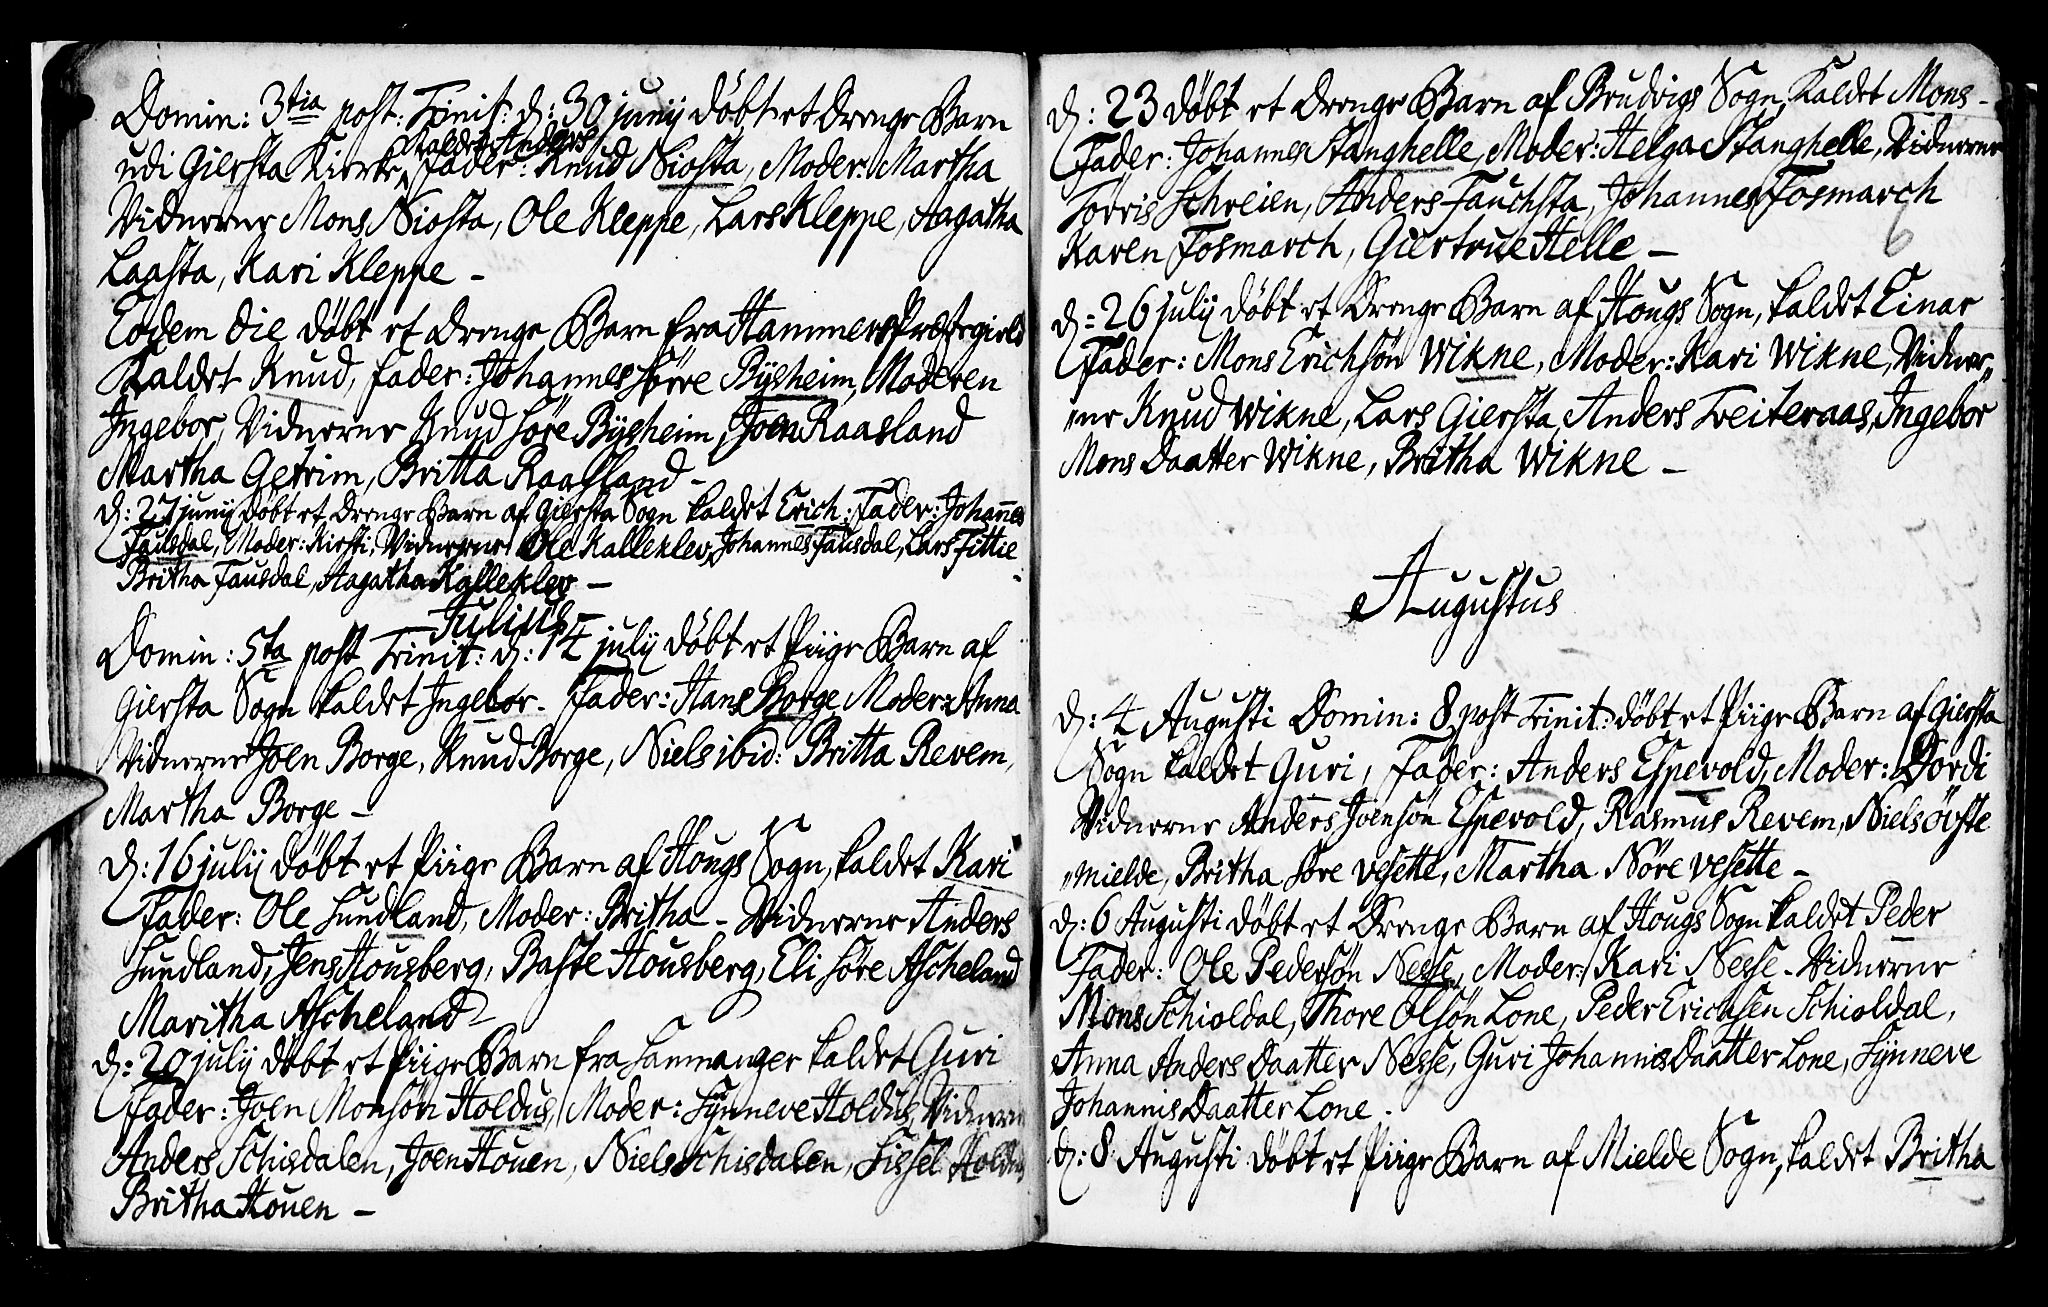 Domin: 3tia post: Trinit: d: 30 junij döbt et Drenge Barn
kaldet Anders
udi Giersta Kirke, Fader: Knud Niosta, Moder: Martha
Vidnerne Mons Niosta, Ole Kleppe, Lars Kleppe, Aagatha
Laasta, Kari Kleppe –
Eodem die döbt et Drenge Barn fra Hammers Præstegield
Kaldet Knud, Fader: Johannes Sörre Bysheim, Moderen
Ingebor, Vidnerne Knud Söre Bysheim, Joen Raasland
Martha Getrim, Britta Raasland –
d: 27 junij döbt et Drenge Barn af Giersta Sogn kaldet Erich: Fader: Johannes
Fausdal, Moder: Kirsti, Vidnerne Ole Kalleklev, Johannes Fausdal, Lars Tittie
Britha Fausdal, Aagatha Kalleklev –
Julius –
Domin: 5ta post Trinit: d: 14 julij döbt et Piige Barn af
Giersta Sogn kaldet Ingebor. Fader: Hans Borge Moder: Anna
Vidnerne Joen Borge, Knud Borge, Niels ibid: Britta Revem,
Martha Borge –
d: 16 julij döbt et Piige Barn af Hougs Sogn, kaldet Kari
Fader: Ole Sundland, Moder: Britha – Vidnerne Anders
Sundland, Jens Housberg, Baste Housberg, Eli Söre Ascheland
Maritha Ascheland –
d: 20 julij döbt et Piige Barn fra Hammanger kaldet Guri
Fader: Joen Monsön Holdus, Moder: Synneve Holdus, Vidnerne
Anders Schisdalen, Joen Houen, Niels Schisdalen, Sissel Holdus
Britha Houen –
d: 23 döbt et Drenge Barn af Brudvigs Sogn, Kaldet Mons –
Fader: Johannes Stanghelle, Moder: Helga Stanghelle, Vidnerne
Torris Schreien, Anders Fauchsta, Johannes Fosmarch
Karen Fosmarch, Giertrue Helle –
6
d: 26 julij döbt et Drenge Barn af Hougs Sogn, kaldet Einar
Fader: Mons Erichsön Wikne, Moder: Kari Wikne, Vidner„
„ne Knud Wikne, Lars Giersta, Anders Treiteraas, Ingebor
Mons Daatter Wikne, Britha Wikne –
Augustus
d: 4 Augusti Domin: 8 post Trinit: döbt et Piige Barn af Giersta
Sogn kaldet Guri, Fader: Anders Espevold, Moder: Dordi
Vidnerne Anders Joensön Espevold, Rasmus Revem, Niels övste
„mielde, Britha Söre Vesette, Martha Nöre Vesette –
d: 6 Augusti döbt et Drenge Barn af Hougs Sogn kaldet Peder
Fader: Ole Pedersön Nesse, Moder: Kari Nesse – Vidnerne
Mons Schioldal, Thore Olsön Lone, Peder Erichsen Schioldal,
Anna Anders Daatter Nesse, Guri Johannis Daatter Lone, Synneve
Johannis Daatter Lone.
d: 8 Augusti döbt et Piige Barn af Mielde Sogn, kaldet Britha